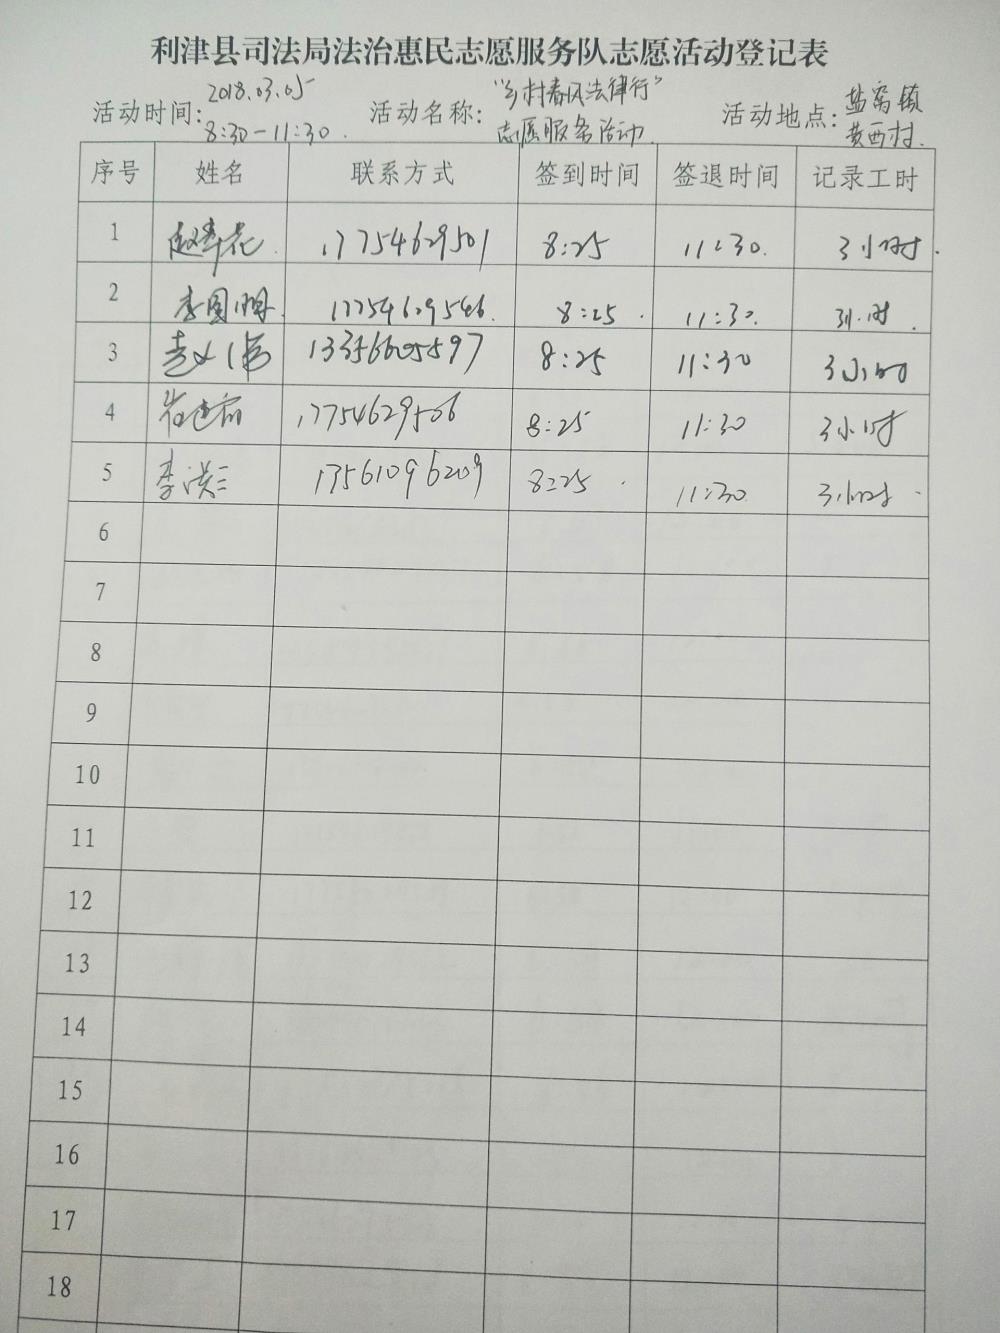 利津县司法局法治惠民志愿服务队志愿活动登记表
活动时间: 2018.03.05 8:30-11:30. 活动名称: "乡村春风法律行" 志愿服务活动. 活动地点: 盐窝镇 黄西村.
序号 姓名 联系方式 签到时间 签退时间 记录工时
1 17754629501 8:25 11:30. 3小时.
2 李国明. 17754629546. 8:25. 11:30. 3小时.
3 13356605597 8:25 11:30 3小时
4 17754629506 8:25 11:30 3小时
5 李洪三 13561096209 8:25. 11:30. 3小时.
6
7
8
9
10
11
12
13
14
15
16
17
18